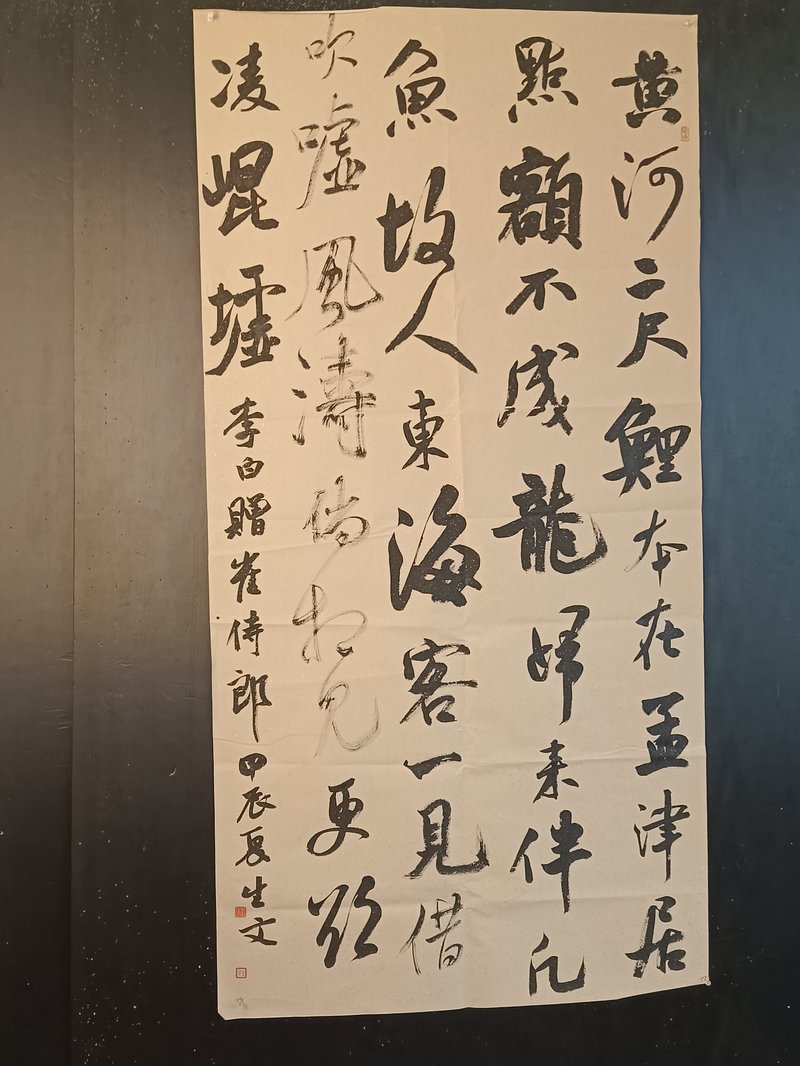 黄河二尺鯉本在孟津居
點額不成龍歸来伴凡
魚故人東海客一見借
吹嘘風濤倘相見更欲
凌崐墟
李白贈崔侍郎甲辰夏生文